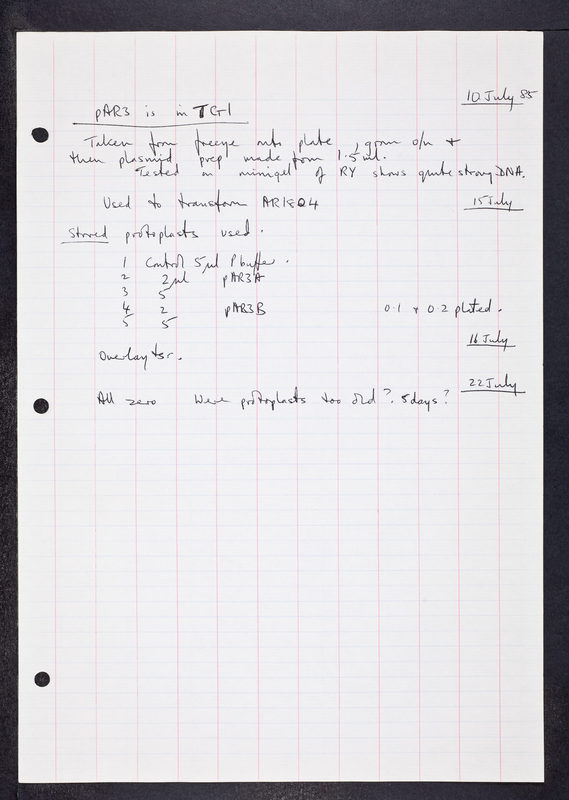 10 July 85
pAR3 is in TG1
Taken from freeze onto plate, grown o/n &
then plasmid prep made from 1.5 ml.
Tested on minigel of RY shows quite strong DNA.
Used to transform AR1804 15 July
Stored protoplasts used.
1 Control 5 µl P buffer.
2 2 µl pAR3A
3 5
4 2 pAR3B 0.1 & 0.2 plated.
5 5
16 July
Overlay tsr.
22 July
All zero Were protoplasts too old? 5 days?